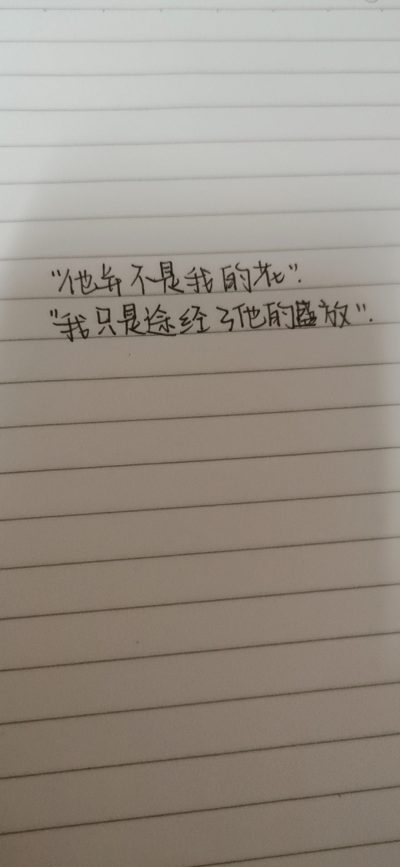 "他并不是我的花".
"我只是途经了他的盛放".